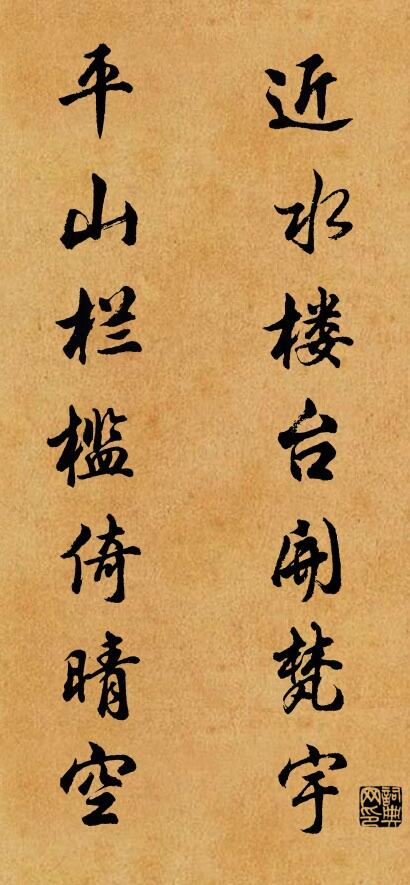 近水楼台開梵宇
平山栏槛倚晴空
詞典网印